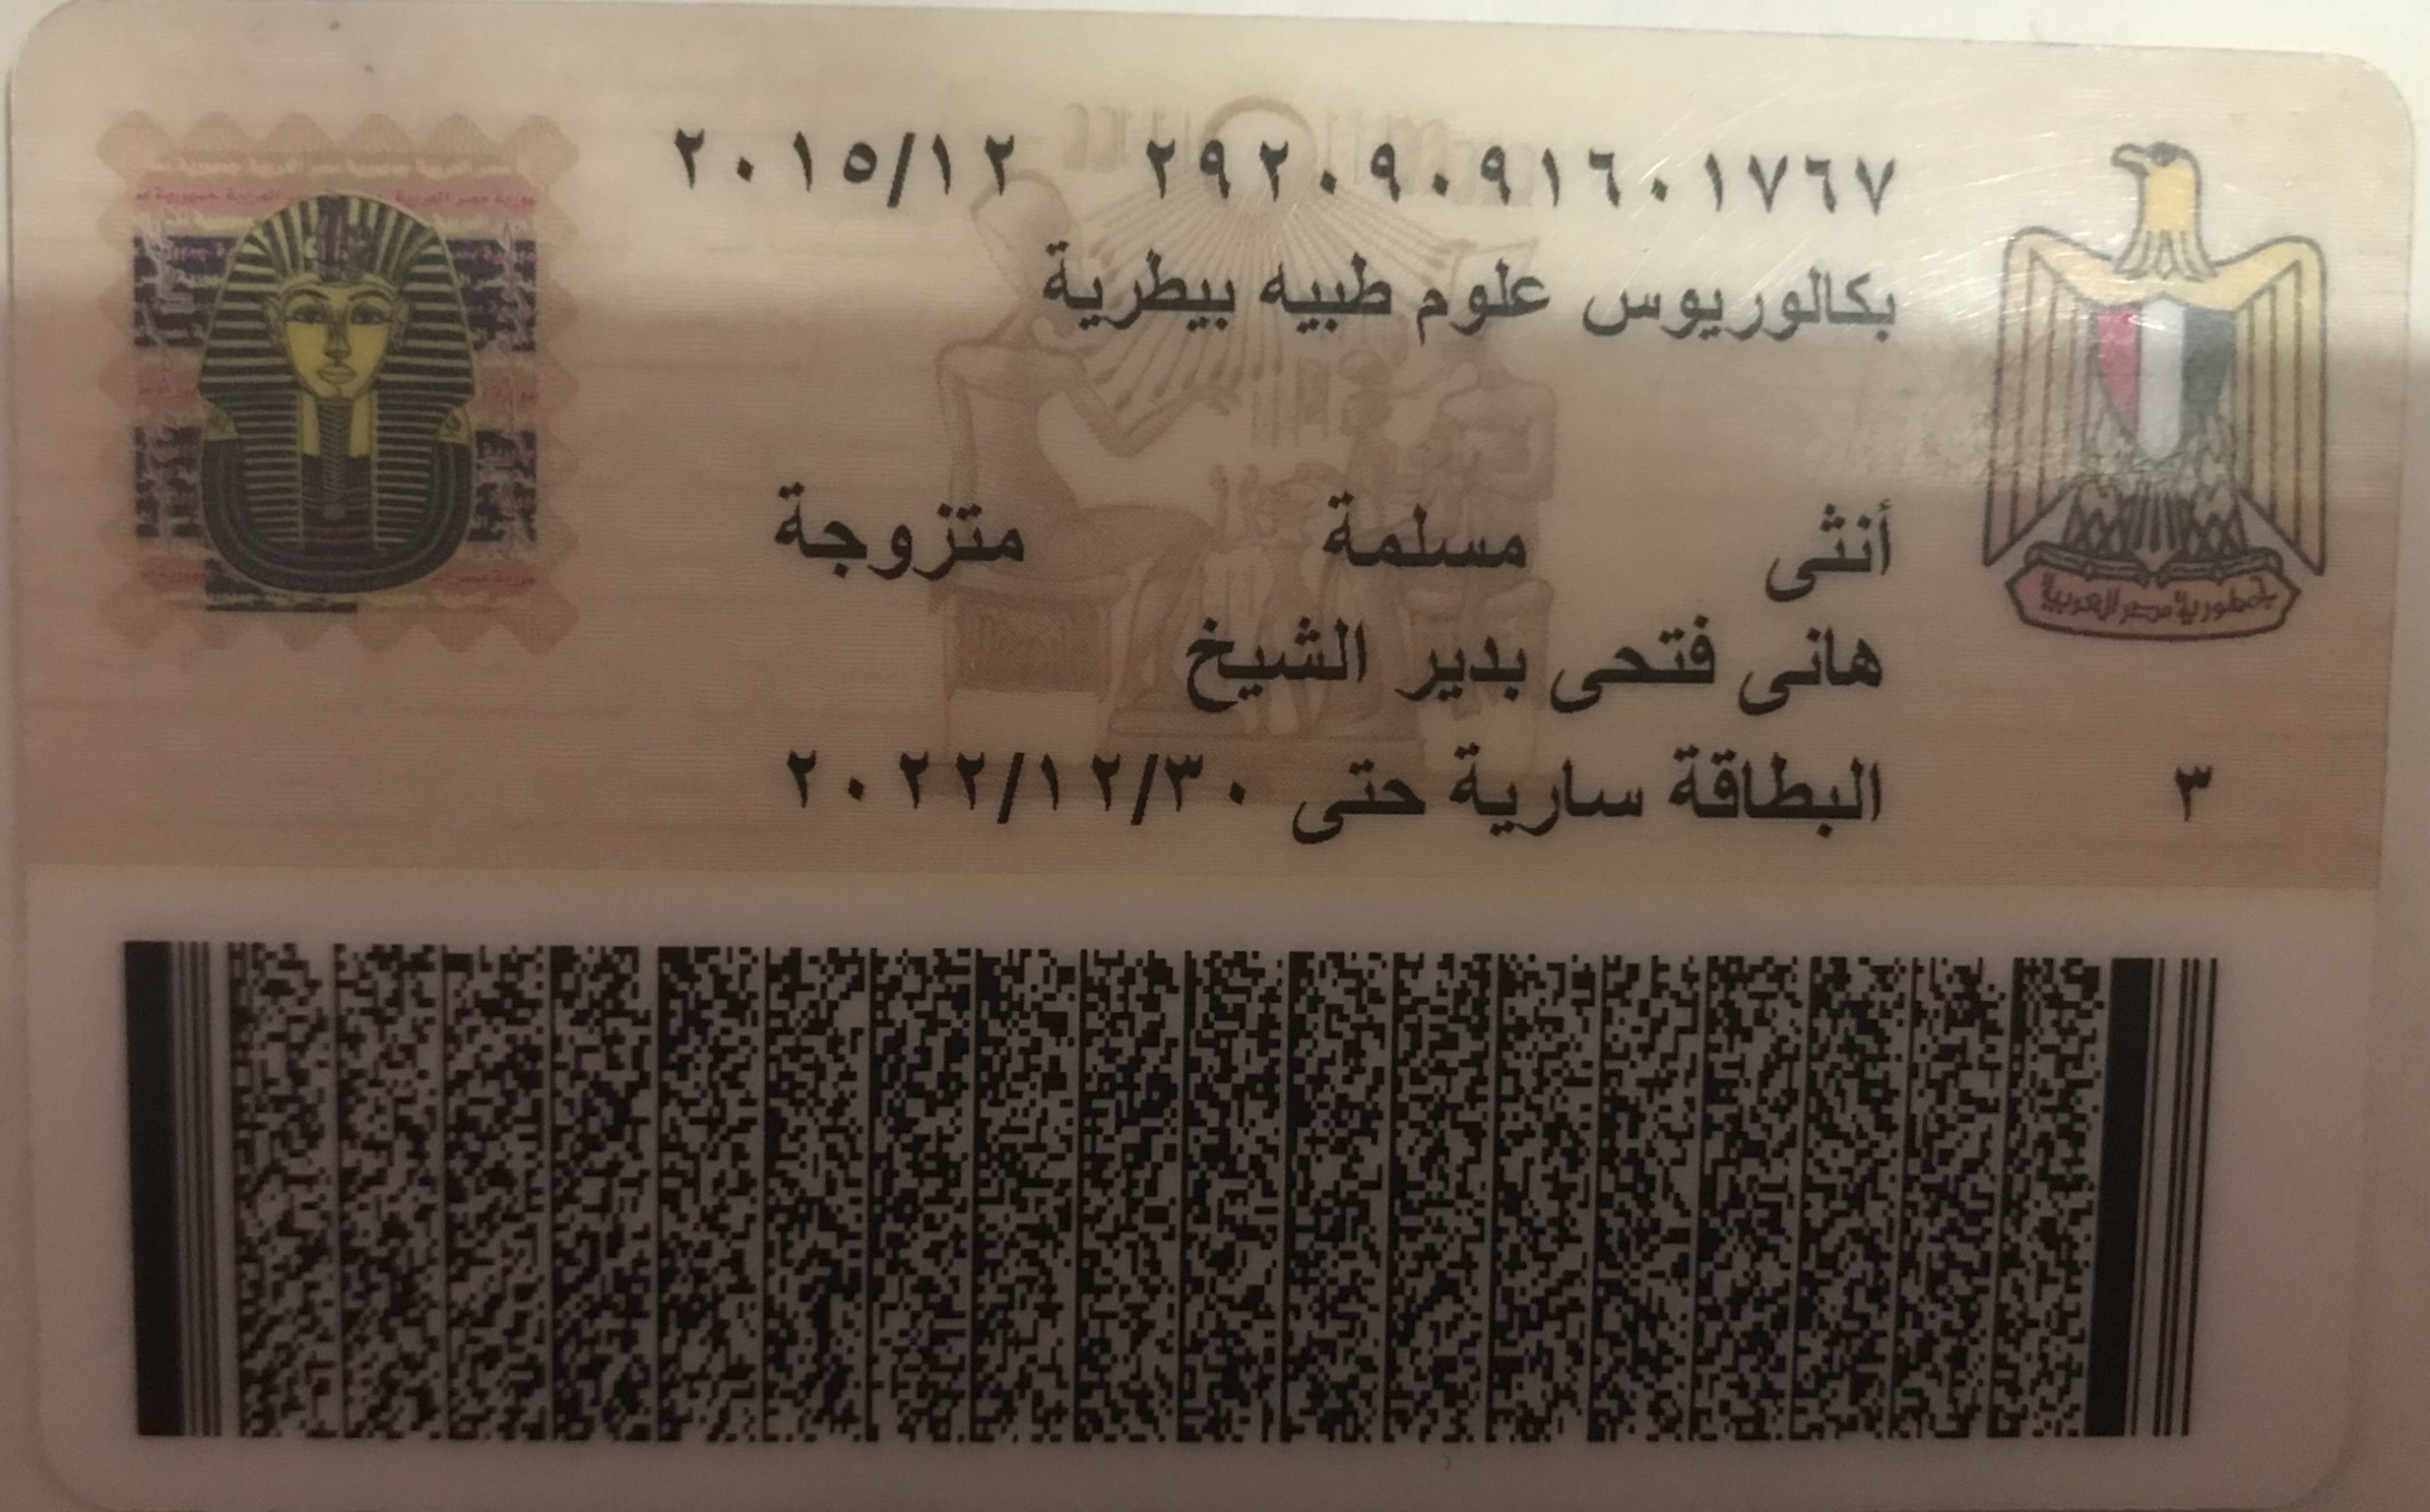 ٢٩٢٠٩٠٩١٦٠١٧٦٧ ٢٠١٥/١٢
بكالوريوس علوم طبيه بيطرية
أنثى مسلمة متزوجة
هانى فتحى بدير الشيخ
البطاقة سارية حتى ٢٠٢٢/١٢/٣٠
٣
جمهورية مصر العربية